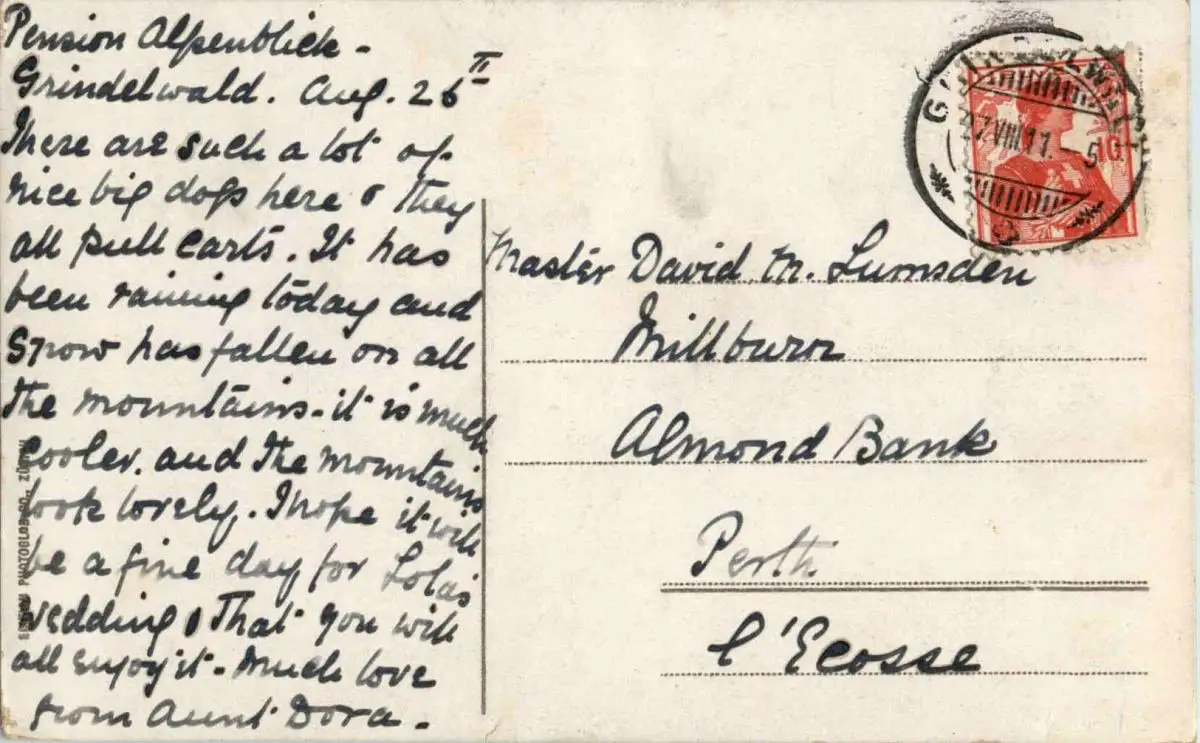 Pension Alpenblick -
Grindelwald. Aug. 26
There are such a lot of
nice big dogs here & they
all pull carts. It has
been raining today and
snow has fallen on all
the mountains - it is much
cooler. and the mountains
look lovely. I hope it will
be a fine day for Lola's
wedding & that you will
all enjoy it - Much love
from Aunt Dora -
GRINDELWALD
27.VIII.11. - 5
10
Master David M. Lumsden
Millburn
Almond Bank
Perth
l'Ecosse
PHOTOGLOB CO., ZÜRICH